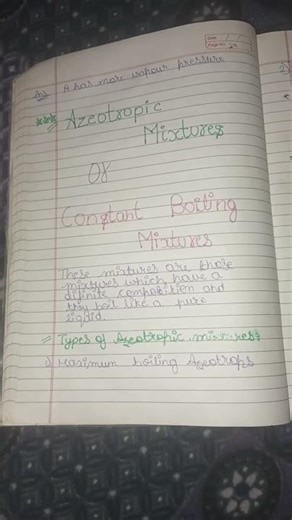 Date
Page No.
Ans A has more vapour pressure
Azeotropic
Mixtures
OR
Constant Boiling
Mixtures
These mixtures are those
mixtures which have a
definite composition and
they boil like a pure
liquid.
Types of Azeotropic mixtures:
1) Maximum boiling Azeotrops
2)